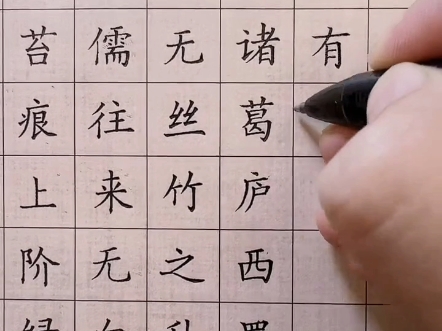 苔痕上阶
儒往来无
无丝竹之
诸葛庐西
有